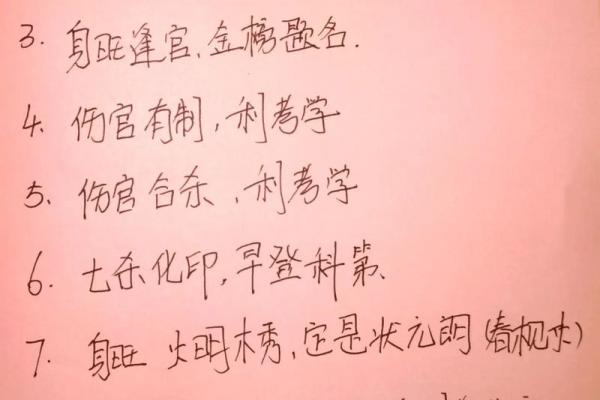 3. 身旺逢官,金榜题名.
4. 伤官有制,利考学
5. 伤官合杀,利考学
6. 七杀化印,早登科第.
7. 身旺 火明木秀,定是状元郎(春木)